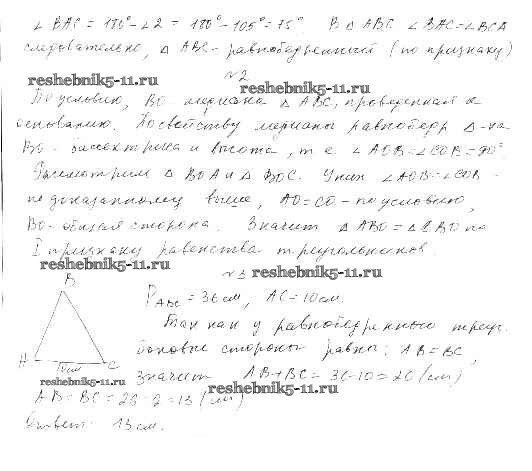 ∠BAC = 180° - ∠2 = 180° - 105° = 75°. В △ ABC ∠BAC = ∠BCA
следовательно, △ ABC - равнобедренный (по признаку)
reshebnik5-11.ru
№2
По условию, BO - медиана △ ABC, проведенная к
основанию. По свойству медианы равнобедр △-ка
BO - биссектриса и высота, т. е. ∠AOB = ∠COB = 90°.
reshebnik5-11.ru
Рассмотрим △ BOA и △ BOC. У них ∠AOB = ∠COB -
по доказанному выше, AO = CO - по условию,
BO - общая сторона. Значит △ ABO = △ CBO по
I признаку равенства треугольников.
reshebnik5-11.ru
№3
reshebnik5-11.ru
B
P ABC = 36 см, AC = 10 см.
Так как у равнобедренного треуг.
боковые стороны равны: AB = BC,
A
10 см
C
значит AB + BC = 36 - 10 = 26 (см)
reshebnik5-11.ru
reshebnik5-11.ru
AB = BC = 26 : 2 = 13 (см)
Ответ: 13 см.